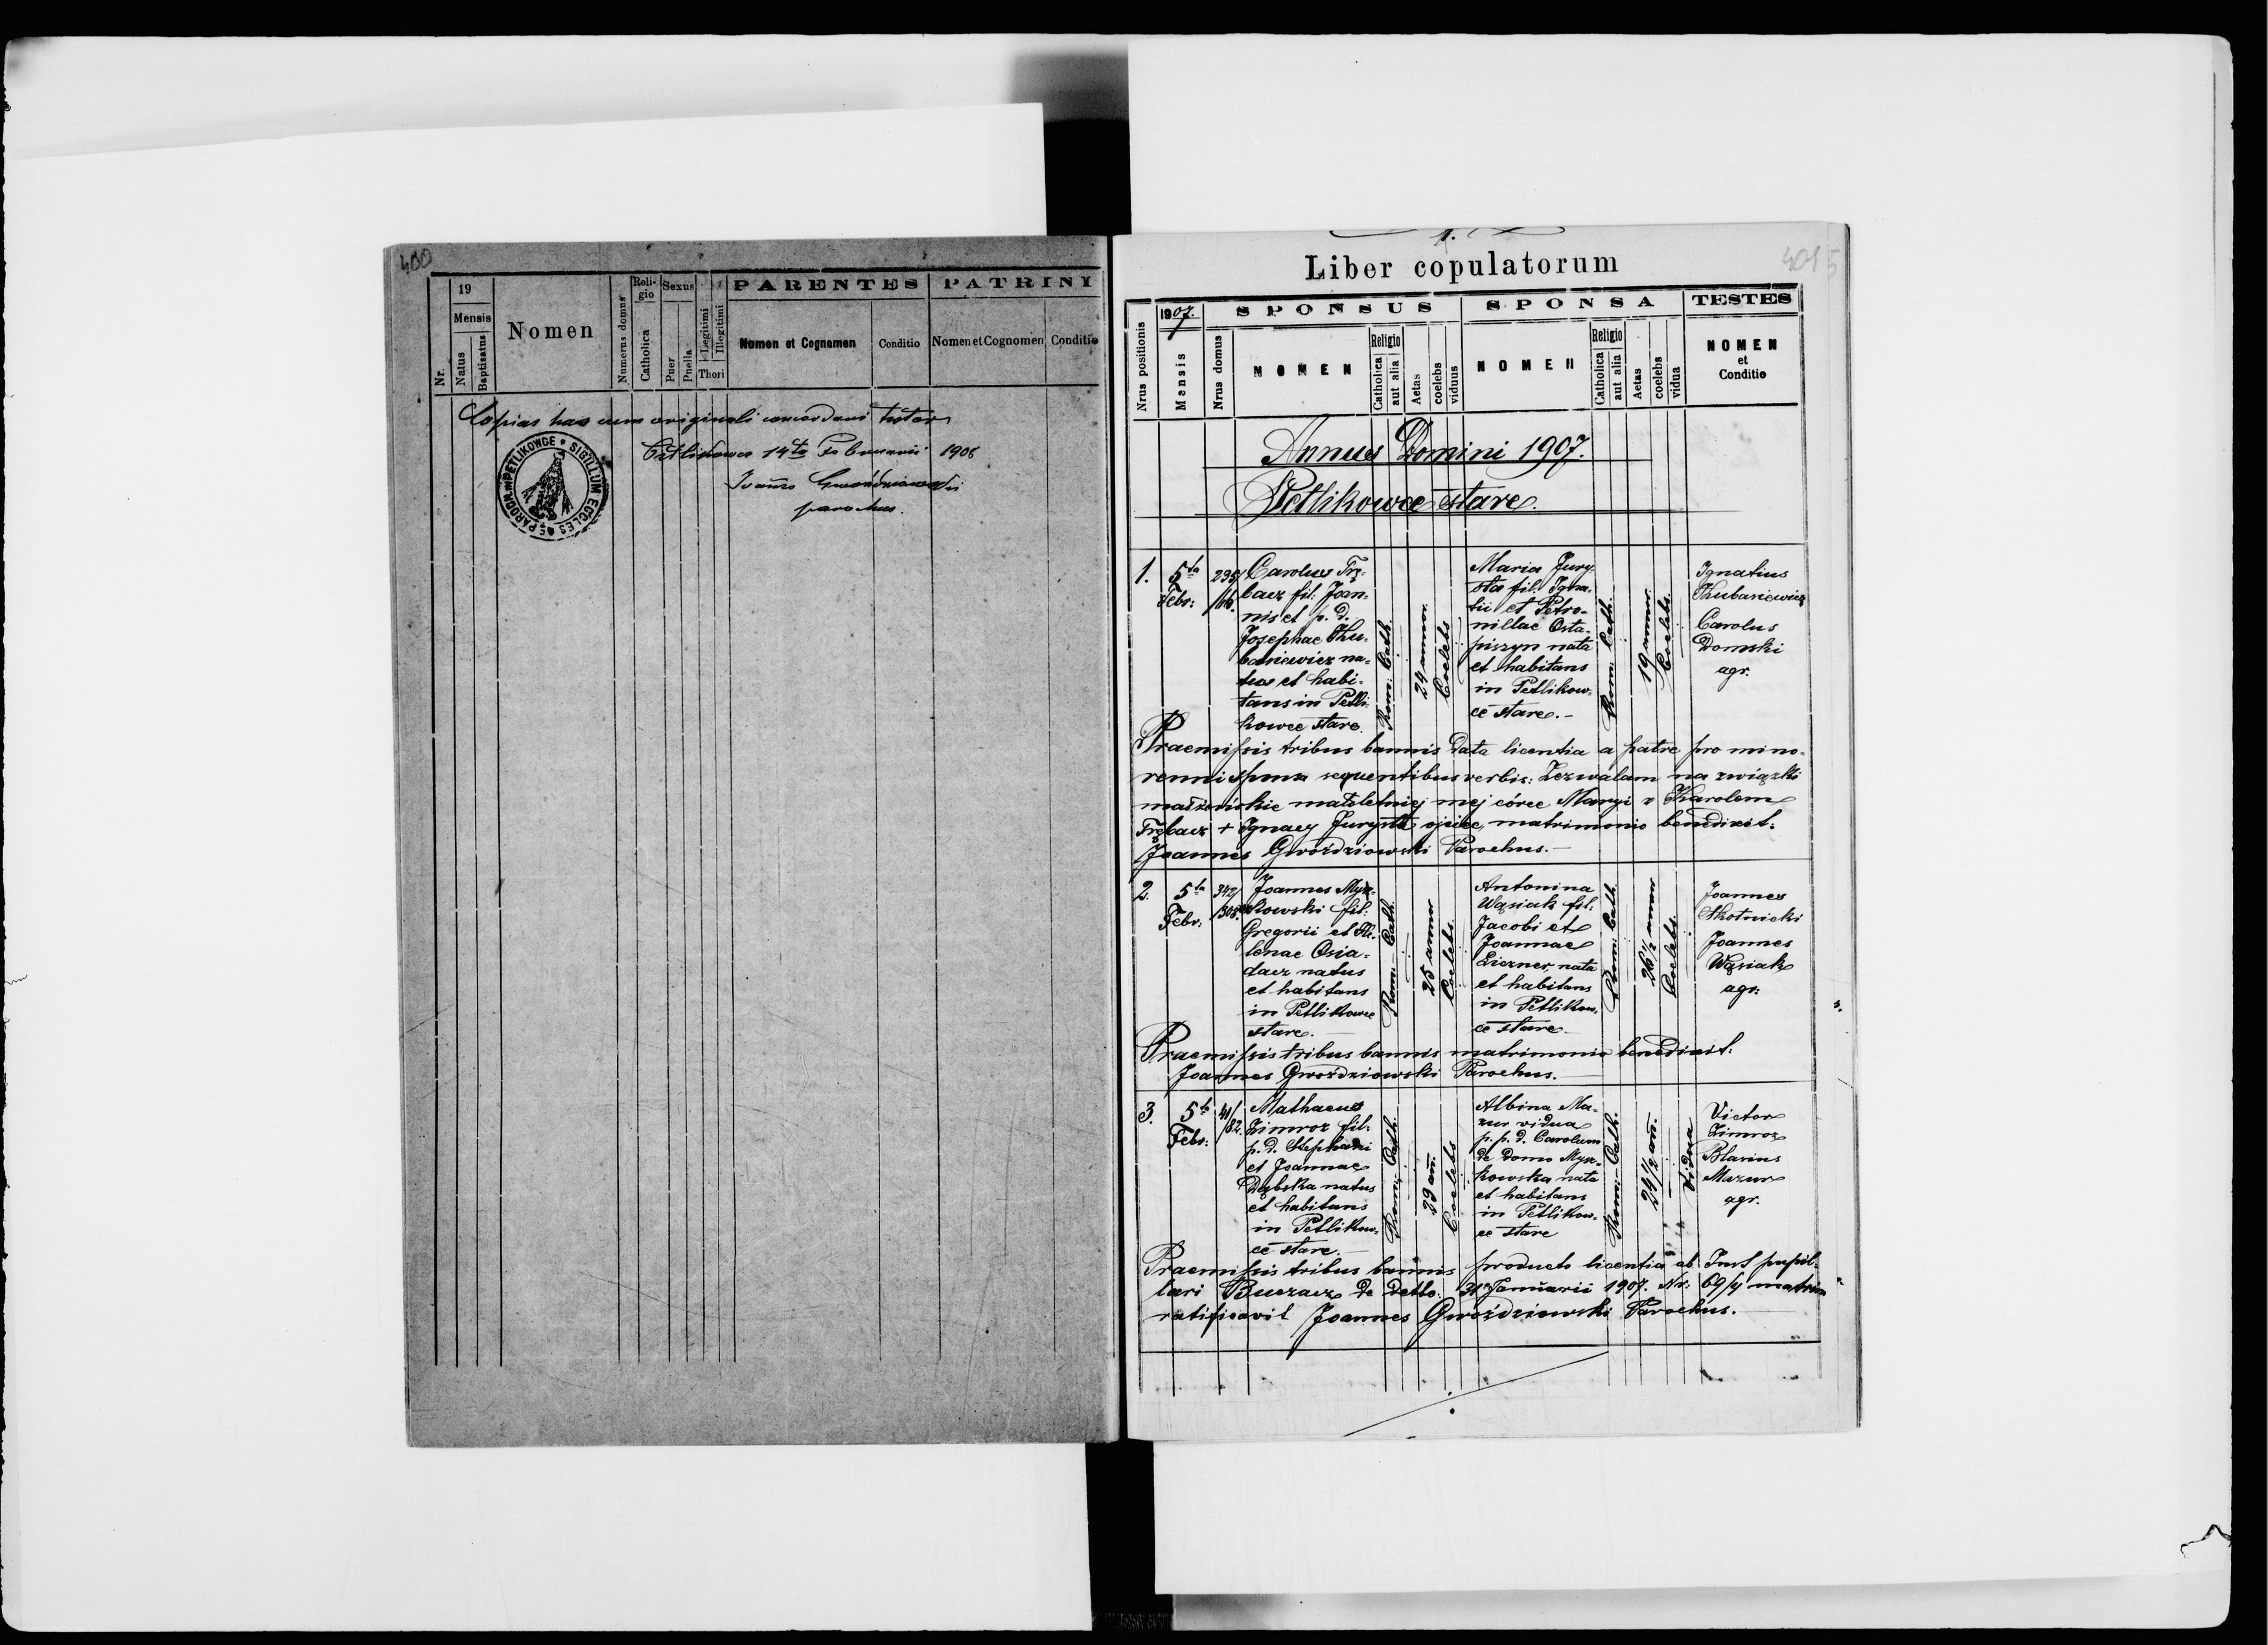 400
19
Mensis
Nr.
Natus
Baptisatus
Nomen
Numerus domus
Reli-
gio
Catholica
Sexus
Puer
Puella
Legitimi
Illegitimi
Thori
PARENTES
Nomen et Cognomen
Conditio
PATRINI
Nomen et Cognomen
Conditio
Copias has cum originali concordani testor
Petlikowce 14ta Februarii 1908
Joannes Gwoździowski
parochus.
SIGILLUM ECCLES PAROCH. in PETLIKOWCE
1.
Liber copulatorum
Nrus positionis
1907.
Mensis
Nrus domus
SPONSUS
NOMEN
Religio
Catholica
aut alia
Aetas
coelebs
viduus
SPONSA
NOMEN
Religio
Catholica
aut alia
Aetas
coelebs
vidua
TESTES
NOMEN
et
Conditio
Annus Domini 1907.
Petlikowce stare.
1.
5ta
Febr:
295/
/16.
Carolus Trę-
bacz fil. Joan-
nis et p. d.
Josephae Ku-
basiewicz na-
tus et habi-
tans in Petli-
kowce stare.
Rom: Cath.
24 annor.
Coelebs
Maria Jury-
sta fil. Igna-
tii et Petro-
nillae Osta-
piszyn nata
et habitans
in Petlikow-
ce stare.-
Rom: Cath.
19 annor.
Coelebs.
Ignatius
Kubasiewicz
Carolus
Domski
agr.
Praemissis tribus bannis data licentia a patre pro mino-
renni spnsa sequentibus verbis: Zezwalam na związki
małżeńskie małoletniej mej córce Maryi z Karolem
Trębacz + Ignacy Jurysta ojciec, matrimonio benedixit.
Joannes Gwoździowski Parochus.-
2.
5ta
Febr:
342/
/308.
Joannes Mysz-
kowski fil:
Gregorii et He-
lenae Osia-
dacz natus
et habitans
in Petlikowce
stare.
Rom: Cath.
25 annor
Coelebs.
Antonina
Wąsiak fil.
Jacobi et
Joannae
Liczner, nata
et habitans
in Petlikow-
ce stare.
Rom: Cath.
26 1/2 annor
Coelebs.
Joannes
Skotnicki
Joannes
Wąsiak
agr:
Praemissis tribus bannis matrimonio benedixit:
Joannes Gwoździowski Parochus.
3.
5ta
Febr:
41/
/82.
Mathaeus
Zimroz fil:
p. d. Stephani
et Joannae
Dąbska natus
et habitans
in Petlikow-
ce stare.
Rom: Cath.
39 añ.
Coelebs
Albina Ma-
zur vidua
p. p. d. Carolum
de domo Mysz-
kowska nata
et habitans
in Petlikow-
ce stare
Rom: Cath.
24 1/2 añ.
Vidua
Victor
Zimroz
Blasius
Mazur
agr.
Praemissis tribus bannis producto licentia ab Inst pupil-
lari Buczacz de detto: 31 Januarii 1907. Nr: 69/4 matrim
ratificavit Joannes Gwoździowski Parochus.